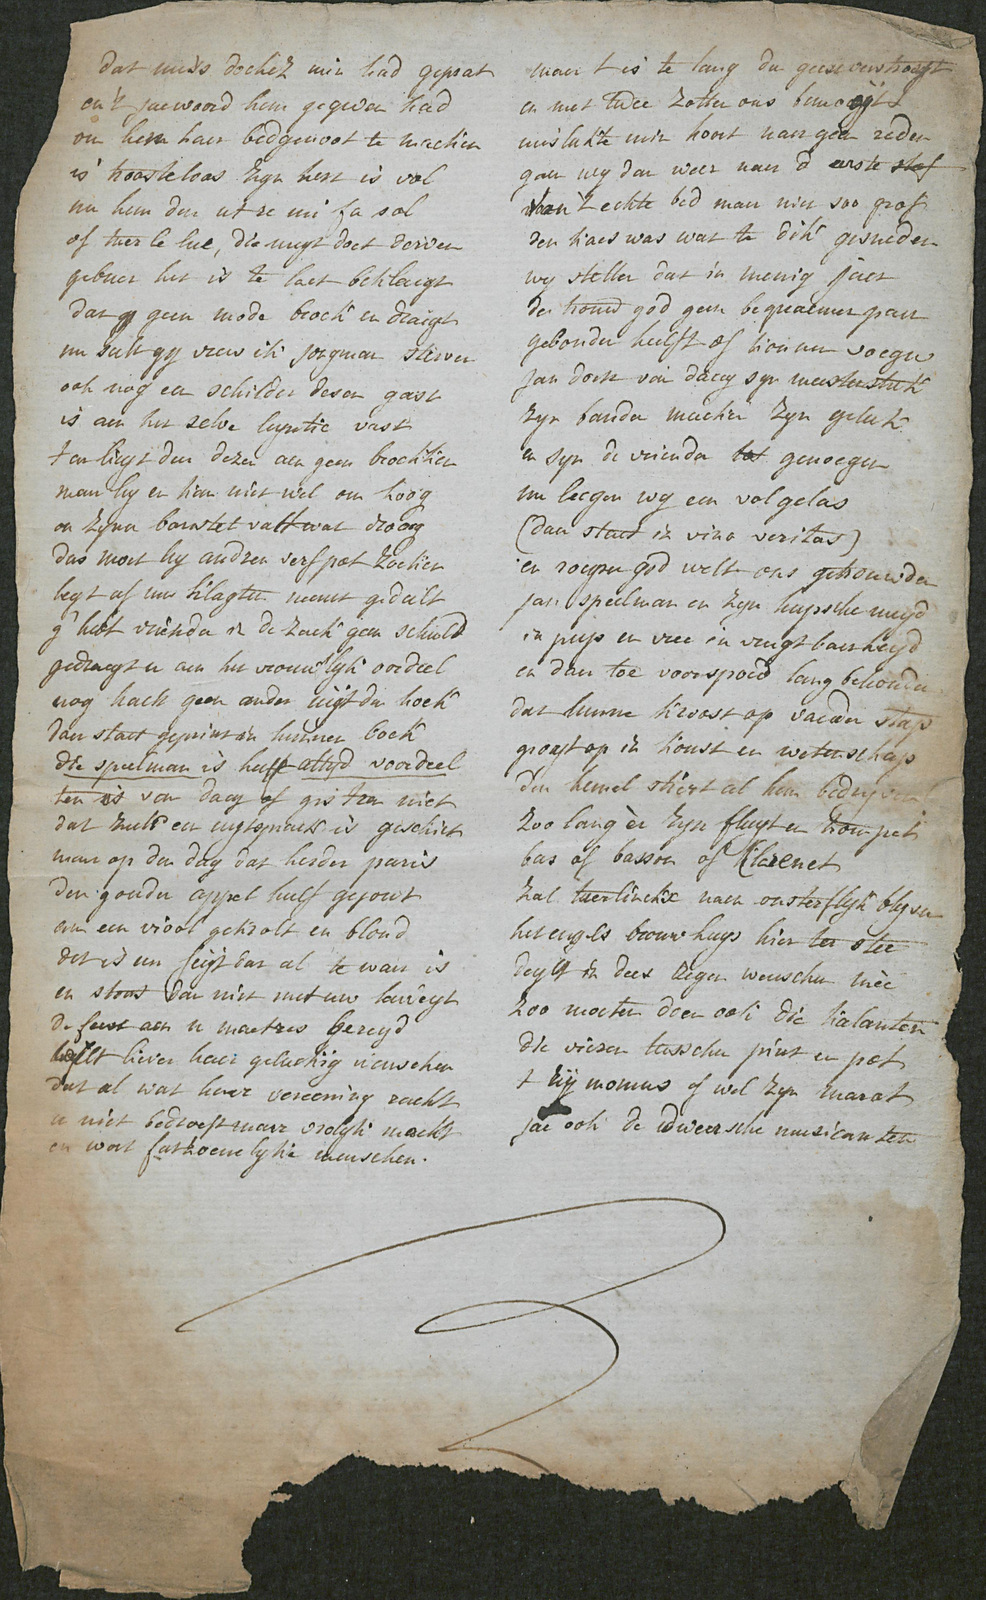 dat miss dochez min had gepraat
en 't jaewoord hem gegeven had
om hem haer bedgenoot te maeken
is troosteloos zyn hert is vol
nu hem den ut re mi fa sol
of tuer le lue, die meyt doet derven
gebuer het is te laet beklaegt
dat gy geen mode brock en draegt
nu sult gy vrees ik jongman sterven
ook nog een schilder desen gast
is aen het selve lyntie vast
t en liegt den dezen aen geen brocken
maer hy en kan niet wel om hoog
en zynen borstel valt wat droog
dus moet hy andren verfpot zoeken
legt af uwe klagten neemt gedult
g' hebt vrienden in de zaek geen schuld
gedraegt u aen het vrouwelyk oordeel
nog haelt geen ander uyt den hoek
daer staet geprint in hunnen boek
die speelman is heeft altyd voordeel
ten is van daeg of gisteren niet
dat zulk een uytspraek is geschiet
maer op den dag dat herder paris
den gouden appel heeft gejont
aen een viool gekrolt en blond
det is un feyt dat al te waer is
en stoort dan niet met uw laweyt
de feest aen u maetres bereyd
wilt liever haer geluckig wenschen
dat al wat haere vereening raekt
u niet bedroeft maer vrolyk maekt
en wort fatsoenelyke menschen.
maer t is te lang den geest verstrooyt
en met twee zotten ons bemoeyt
mislukte min hoort naer geen reden
gaen wy dan weer naer d' eerste stof
van 't echte bed maer niet soo grof
den kaes was wat te dik gesneden
wy stellen dat in menig jaer
de trouw god geen bequaemer paer
gebonden heeft of konnen voegen
jan doet van daeg syn meesterstuk
zyn banden maeken zyn geluk
en syn de vrienden tot genoegen
nu leegen wy een vol gelas
(dan staet in vino veritas)
en roepen god welt ons getrouwden
jan speelman en zyn hupsche meyd
in peys en vree in vrugtbaerheyd
en dan toe voorspoed lang behouden
dat hunne kroost op vaeder stap
groeyt op in konst en wetenschap
den hemel stiert al hun bedryven
zoo lang er zyn fluyt en trompet
bas of basson of klarenet
zal tuerlinckx naem onsterflyk blyven
het engels brouwhuys hier ter stee
deylt in dees zegen wenschen mee
zoo moeten doen ook die kalanten
die vieren tusschen pint en pot
t zy momus of wel zyn marot
jae ook de dweersche musicanten